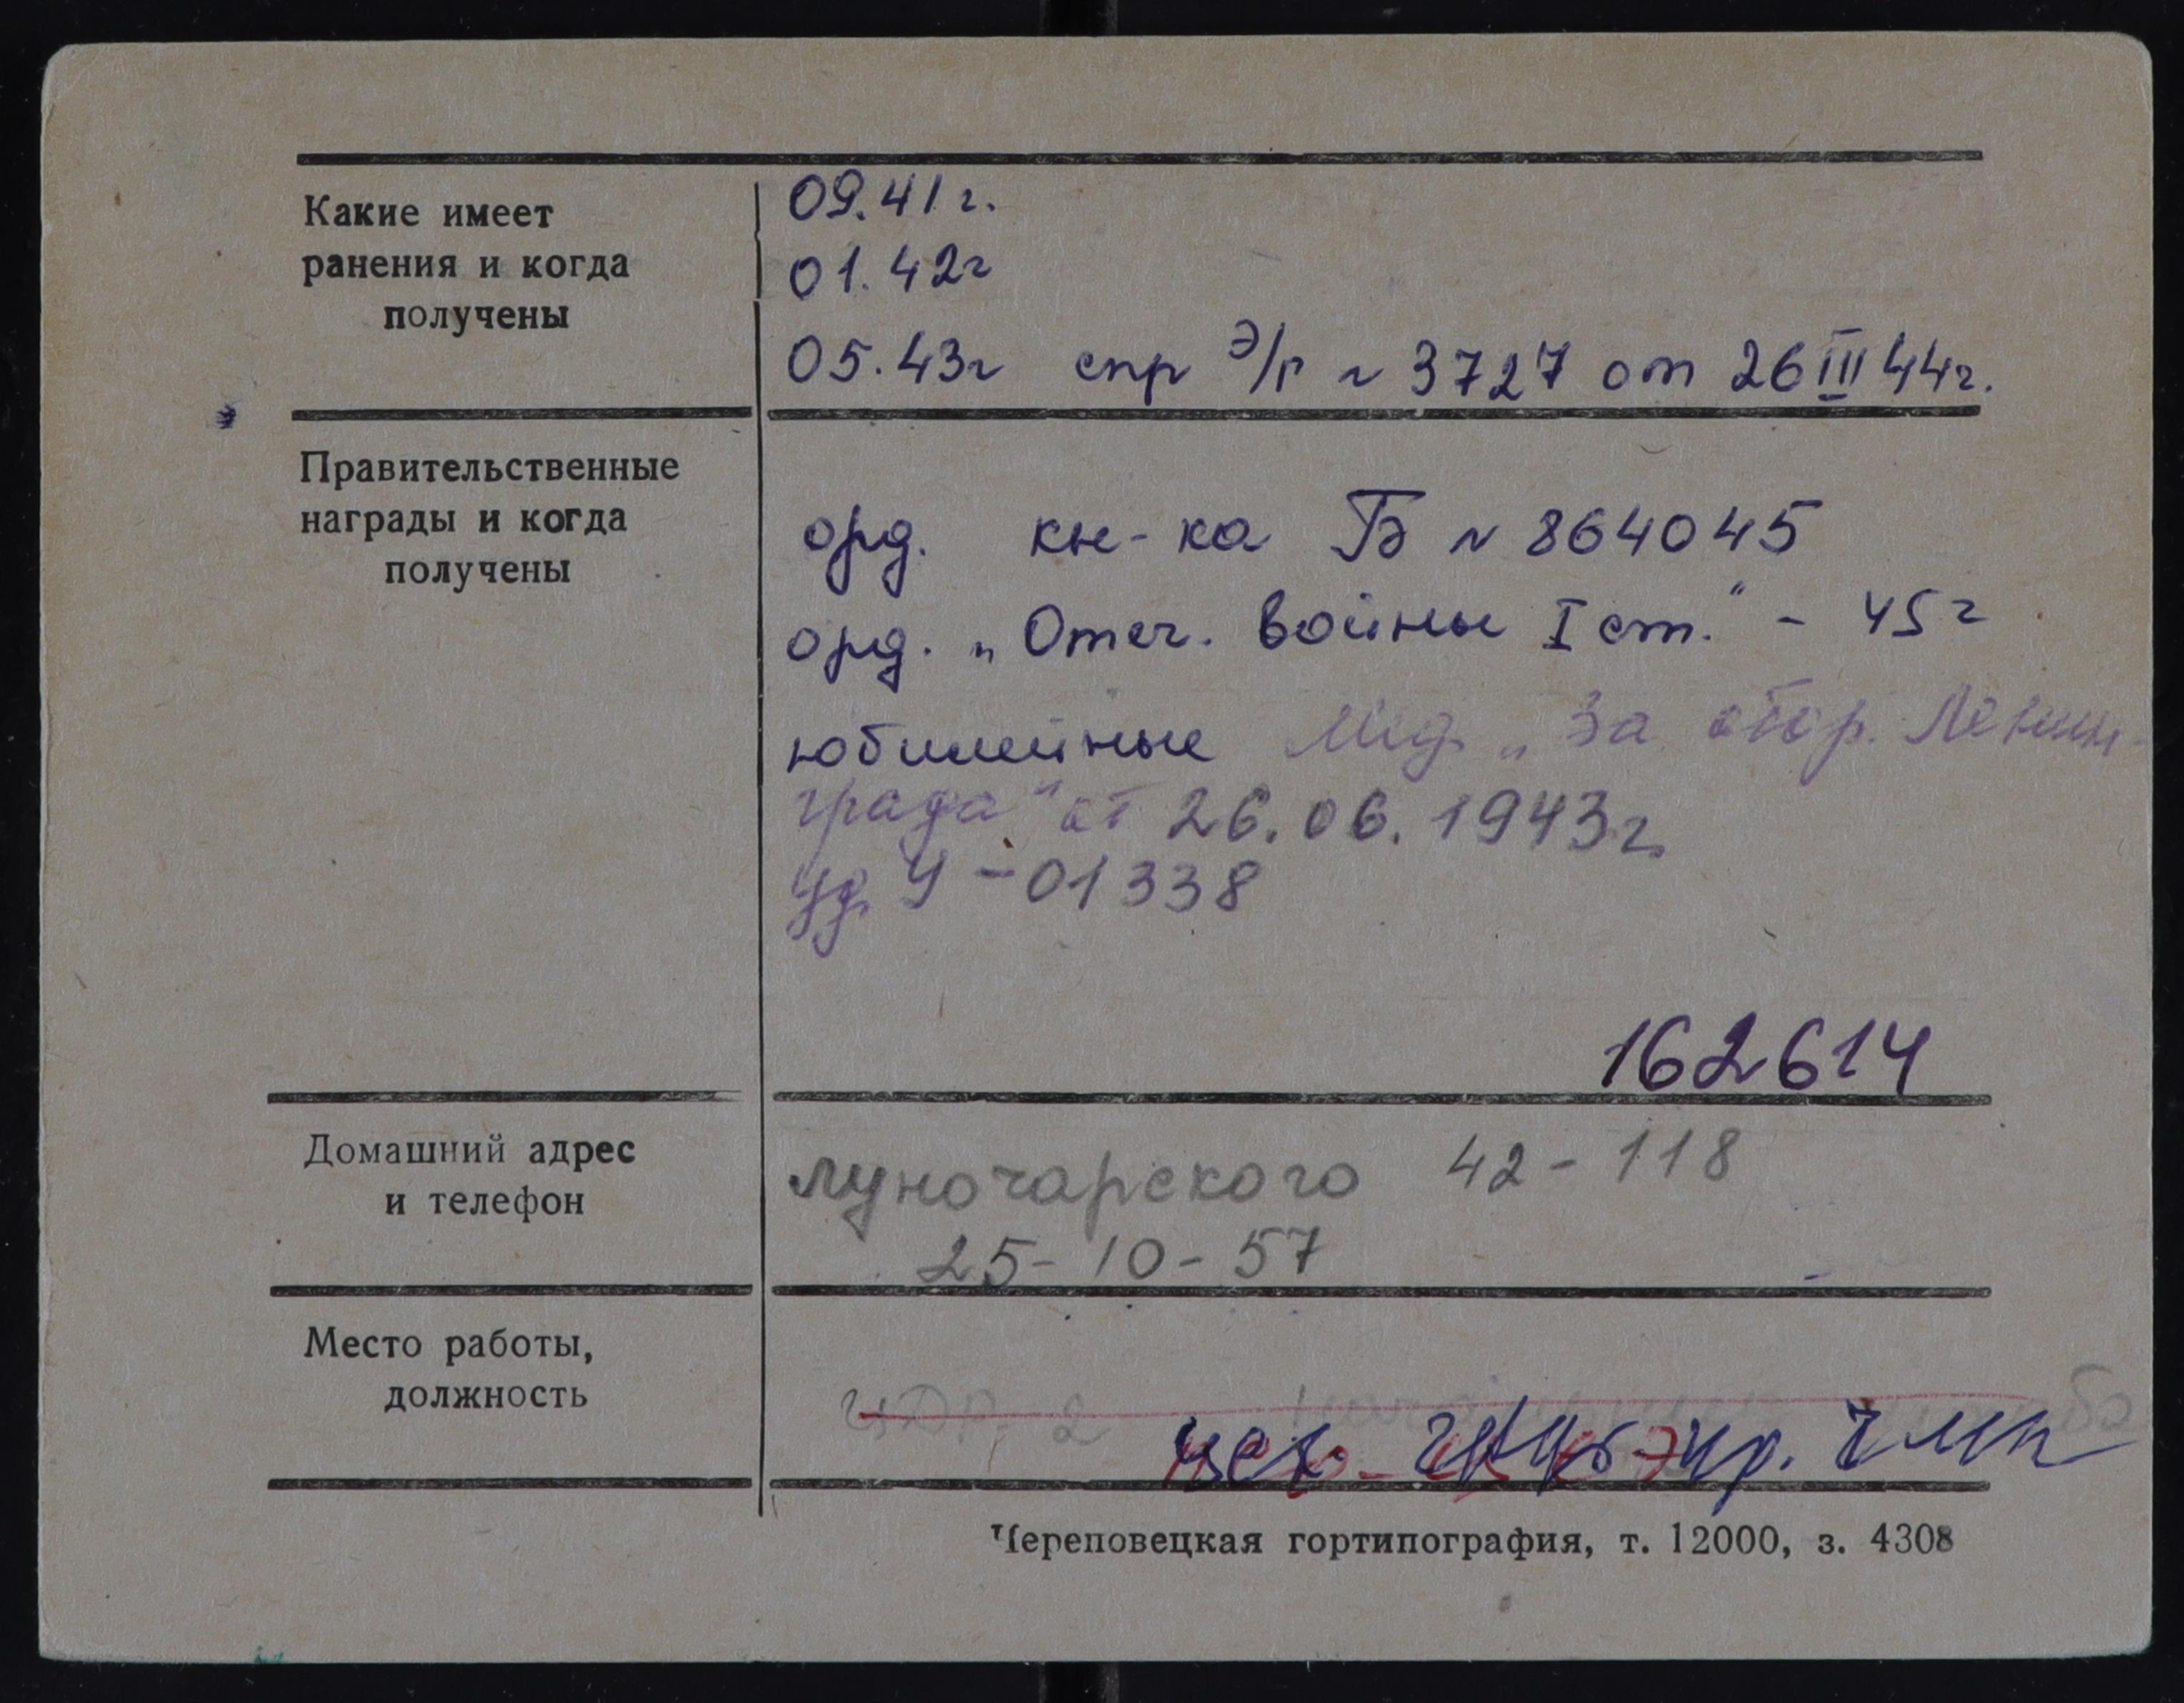 Какие имеет
ранения и когда
получены
09.41 г.
01.42г
05.43г спр Э/г № 3727 от 26 III 44г.
Правительственные
награды и когда
получены
орд. кн-ка Б № 864045
орд. „Отеч. войны I ст." - 45 г
юбилейные Мед. „За обор. Ленин-
града" от 26.06.1943г.
уд. У - 01338
162614
Домашний адрес
и телефон
Луночарского 42 - 118
25-10-57
Место работы,
должность
пр. ЧМК
Череповецкая гортипография, т. 12000, з. 4308